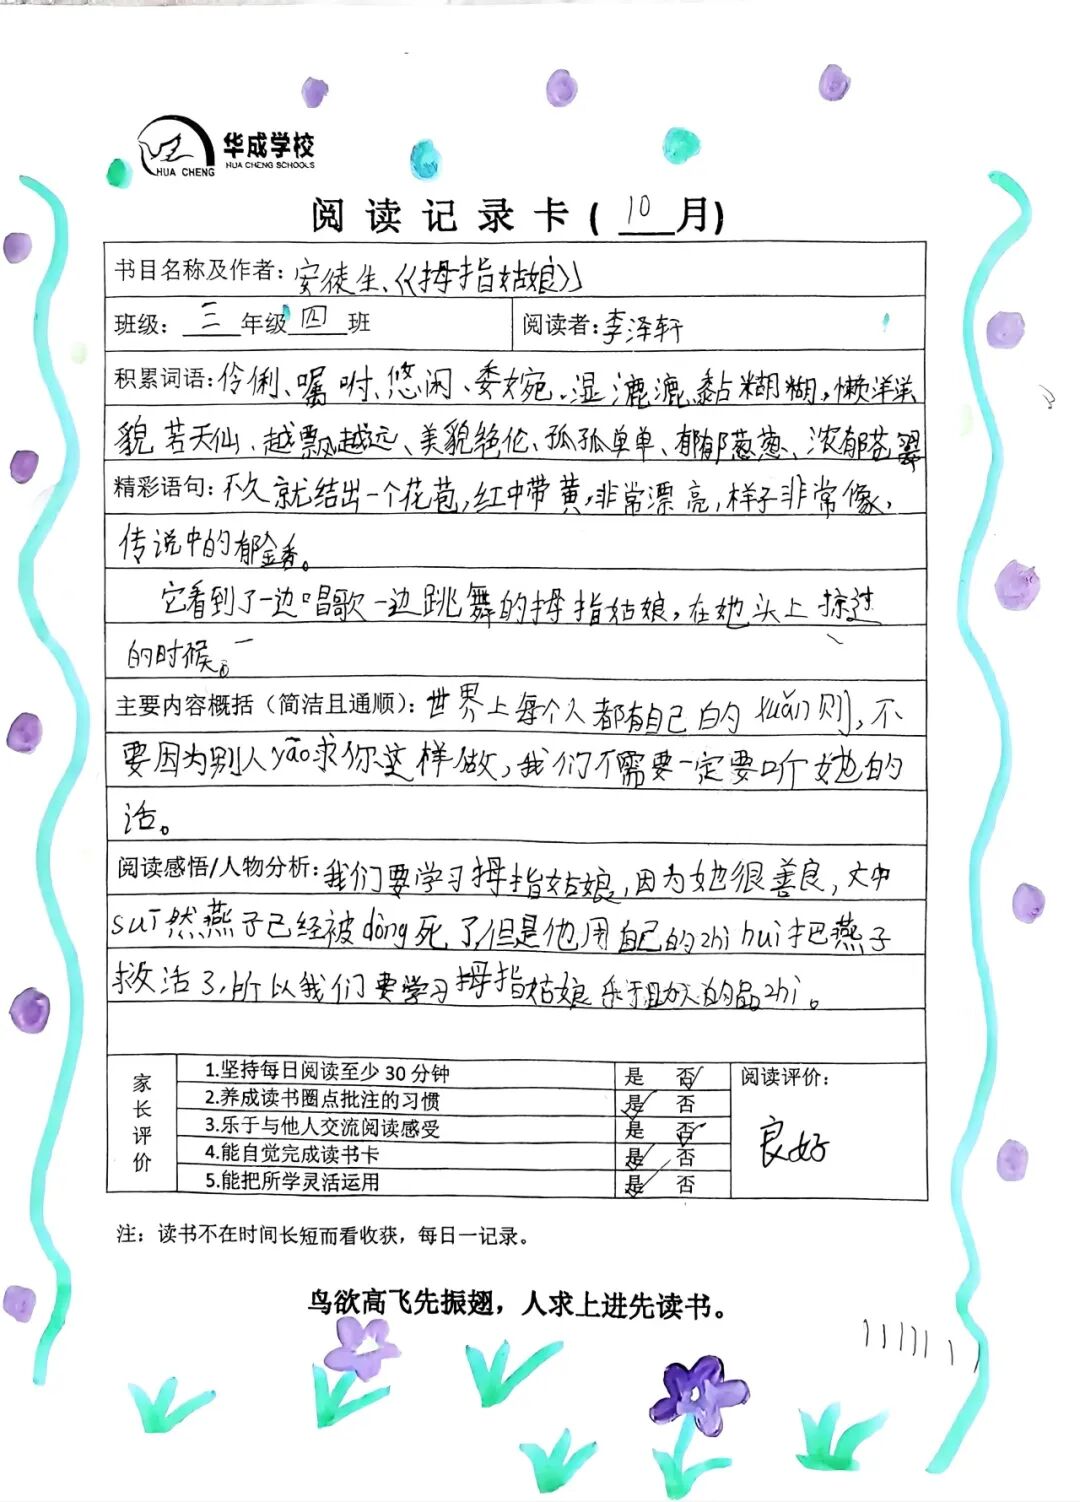 华成学校
HUA CHENG SCHOOLS
HUA CHENG
阅读记录卡(10月)
书目名称及作者：安徒生、《拇指姑娘》
班级：三年级四班 阅读者：李泽轩
积累词语：伶俐、嘱咐、悠闲、委婉、湿漉漉、黏糊糊、懒洋洋
貌若天仙、越飘越远、美貌绝伦、孤孤单单、郁郁葱葱、浓郁苍翠
精彩语句：不久就结出一个花苞，红中带黄，非常漂亮，样子非常像，
传说中的郁金香。
它看到了一边唱歌一边跳舞的拇指姑娘，在她头上掠过
的时候。
主要内容概括（简洁且通顺）：世界上每个人都有自己的xuǎn则，不
要因为别人yāo求你这样做，我们不需要一定要听她的
话。
阅读感悟/人物分析：我们要学习拇指姑娘，因为她很善良，文中
suī然燕子已经被dòng死了，但是他用自己的zhi hui把燕子
救活了，所以我们要学习拇指姑娘乐于助人的品zhi。
家长评价
1.坚持每日阅读至少30分钟 是 否✓
2.养成读书圈点批注的习惯 是✓ 否
3.乐于与他人交流阅读感受 是 否✓
4.能自觉完成读书卡 是✓ 否
5.能把所学灵活运用 是✓ 否
阅读评价：
良好
注：读书不在时间长短而看收获，每日一记录。
鸟欲高飞先振翅，人求上进先读书。